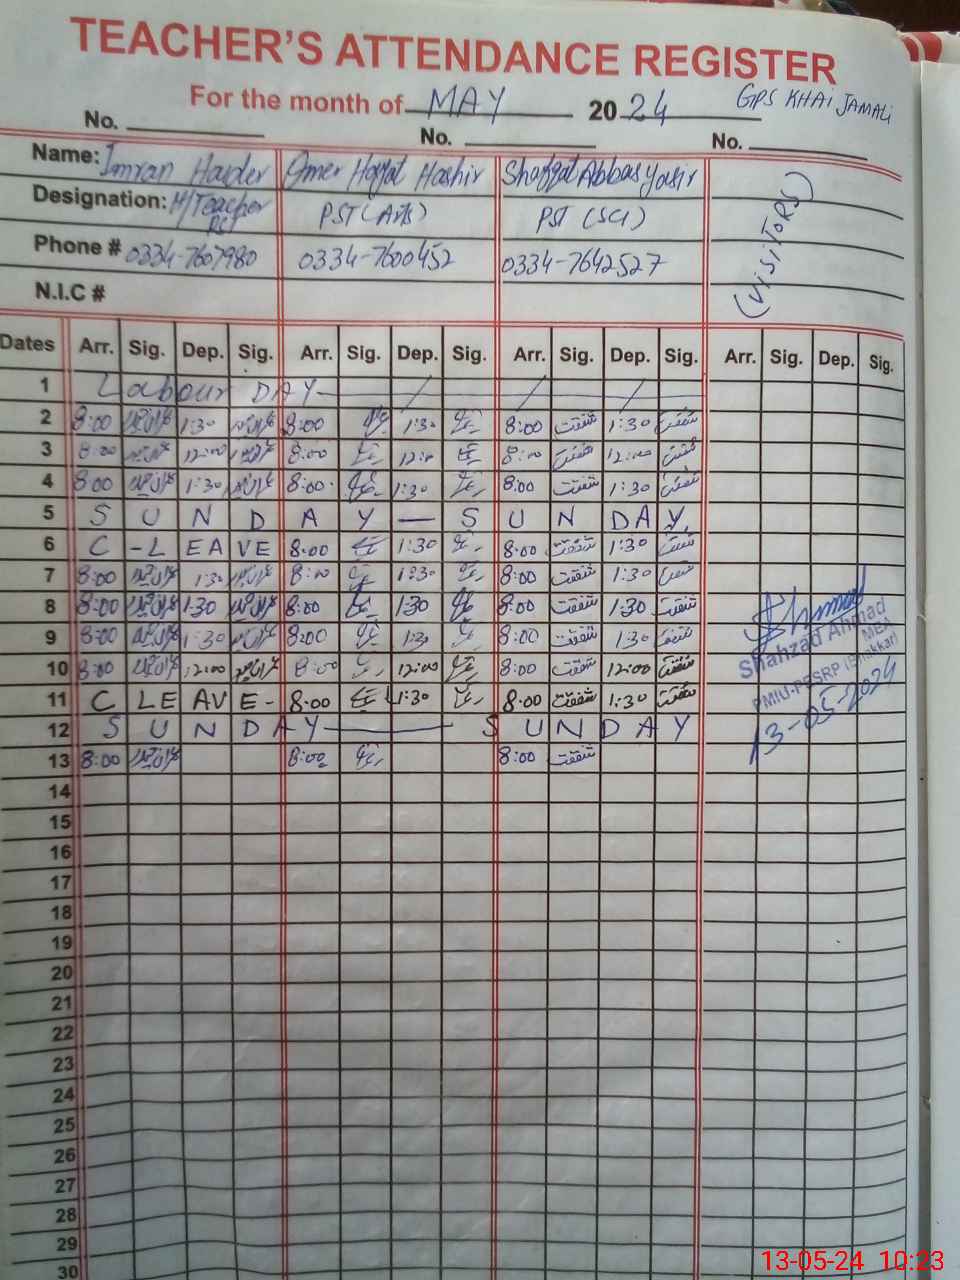 TEACHER'S ATTENDANCE REGISTER
For the month of MAY 2024 GPS KHAI JAMALI
No. No. No.
Name: Imran Haider Omer Hayat Hashir Shafqat Abbas Yasir (VISITORS)
Designation: H/Teacher PST PST (Arts) PST (SCI)
Phone # 0334-7607980 0334-7600452 0334-7642527
N.I.C #
Dates Arr. Sig. Dep. Sig. Arr. Sig. Dep. Sig. Arr. Sig. Dep. Sig. Arr. Sig. Dep. Sig.
1 Labour DAY
2 8:00 1:30 8:00 1:30 8:00 شفقت 1:30 شفقت
3 8:00 12:00 8:00 12:00 8:00 شفقت 12:00 شفقت
4 8:00 1:30 8:00 1:30 8:00 شفقت 1:30 شفقت
5 S U N D A Y — S U N D A Y
6 C - L E A V E 8:00 1:30 8:00 شفقت 1:30 شفقت
7 8:00 1:30 8:00 1:30 8:00 شفقت 1:30 شفقت
8 8:00 1:30 8:00 1:30 8:00 شفقت 1:30 شفقت
9 8:00 1:30 8:00 1:30 8:00 شفقت 1:30 شفقت
10 8:00 12:00 8:00 12:00 8:00 شفقت 12:00 شفقت
11 C L E A V E - 8:00 1:30 8:00 شفقت 1:30 شفقت
12 S U N D A Y — S U N D A Y
13 8:00 8:00 8:00 شفقت
Shahzad Ahmad
MEA
PMIU-PESRP (Bhakkar)
13-05-2024
14
15
16
17
18
19
20
21
22
23
24
25
26
27
28
29
30
13-05-24 10:23